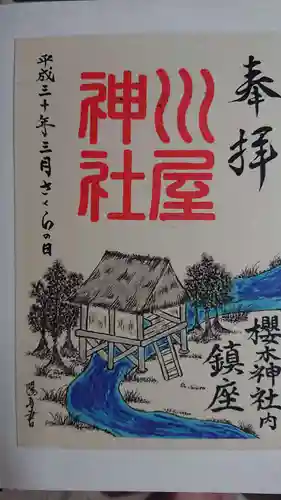 奉拝
川屋
神社
櫻木神社内
鎮座
平成三十年三月さくらの日